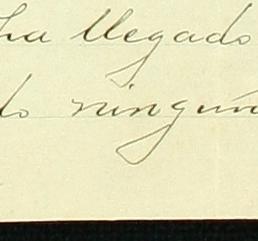 ha llegado
do ningun